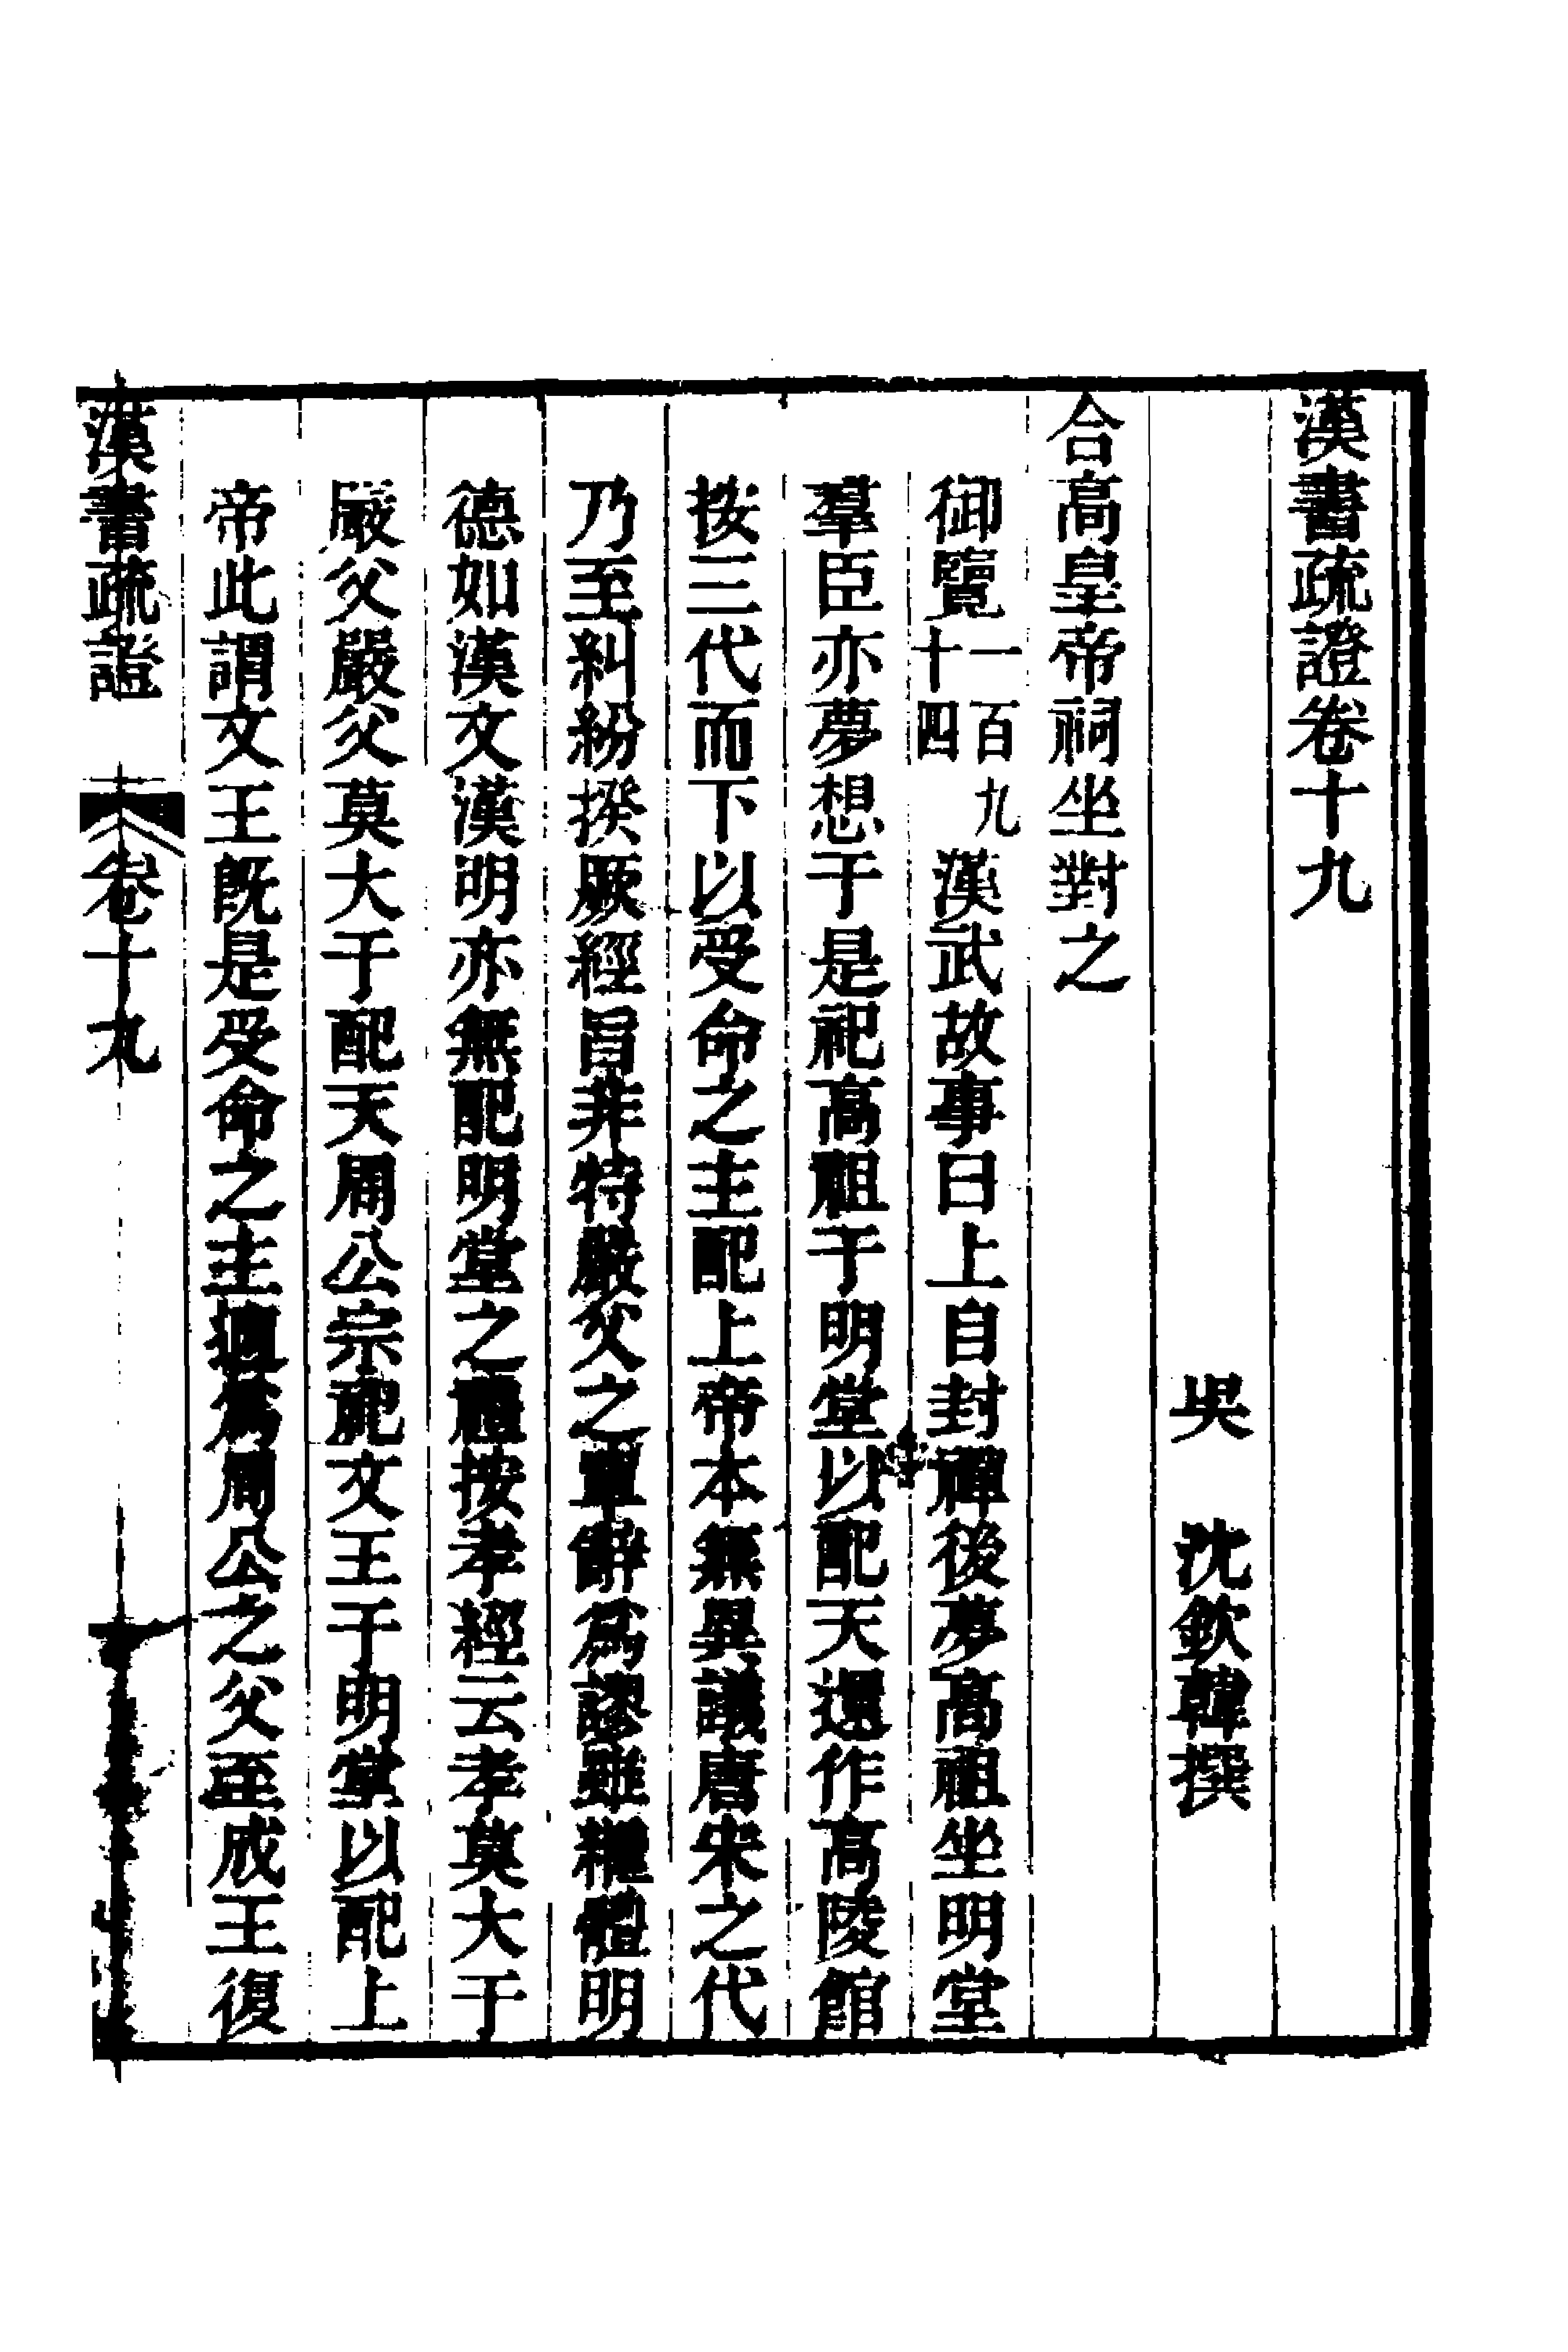 漢書疏證卷十九
吳　沈欽韓撰
合高皇帝祠坐對之
御覽一百九十四漢武故事曰上自封禪後夢高祖坐明堂
羣臣亦夢想于是祀高祖于明堂以配天還作高陵館
按三代而下以受命之主配上帝本無異議唐宋之代
乃至糾紛揆厥經旨非特嚴父之單辭爲謬雖繼體明
德如漢文漢明亦無配明堂之禮按孝經云孝莫大于
嚴父嚴父莫大于配天周公宗祀文王于明堂以配上
帝此謂文王旣是受命之主適爲周公之父至成王復
漢書疏證　卷十九